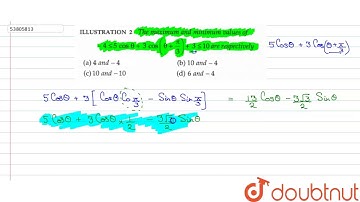 53805813
ILLUSTRATION 2 The maximum and minimum values of
-4 ≤ 5 cos θ + 3 cos(θ + π/3) + 3 ≤ 10 are respectively
5 Cosθ + 3 Cos(θ+π/3)
(a) 4 and -4 (b) 10 and -4
(c) 10 and -10 (d) 6 and -4
5 Cosθ + 3 [ Cosθ Cos π/3 - Sinθ Sin π/3 ] = 13/2 Cosθ - 3√3/2 Sinθ
5 Cosθ + 3 Cosθ · 1/2 - 3√3/2 Sinθ
doubtnut